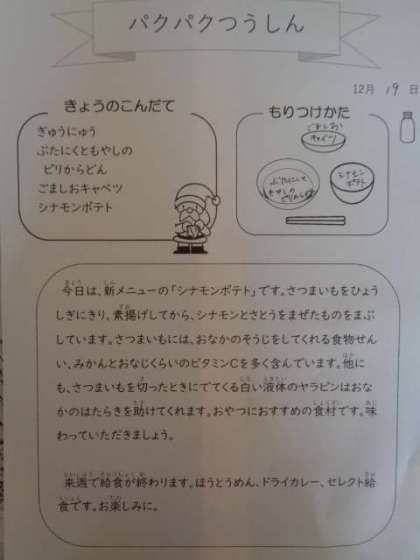 パクパクつうしん
12月 19 日
きょうのこんだて
ぎゅうにゅう
ぶたにくともやしの
ピリからどん
ごましおキャベツ
シナモンポテト
もりつけかた
ごましお
キャベツ
ぶたにくと
もやしの
ピリからどん
シナモン
ポテト
今日は、新メニューの「シナモンポテト」です。さつまいもをひょう
しぎにきり、素揚げしてから、シナモンとさとうをまぜたものをまぶ
しています。さつまいもには、おなかのそうじをしてくれる食物せん
い、みかんとおなじくらいのビタミンCを多く含んでいます。他に
も、さつまいもを切ったときにでてくる白い液体のヤラピンはおな
かのはたらきを助けてくれます。おやつにおすすめの食材です。味
わっていただきましょう。
来週で給食が終わります。ほうとうめん、ドライカレー、セレクト給
食です。お楽しみに。